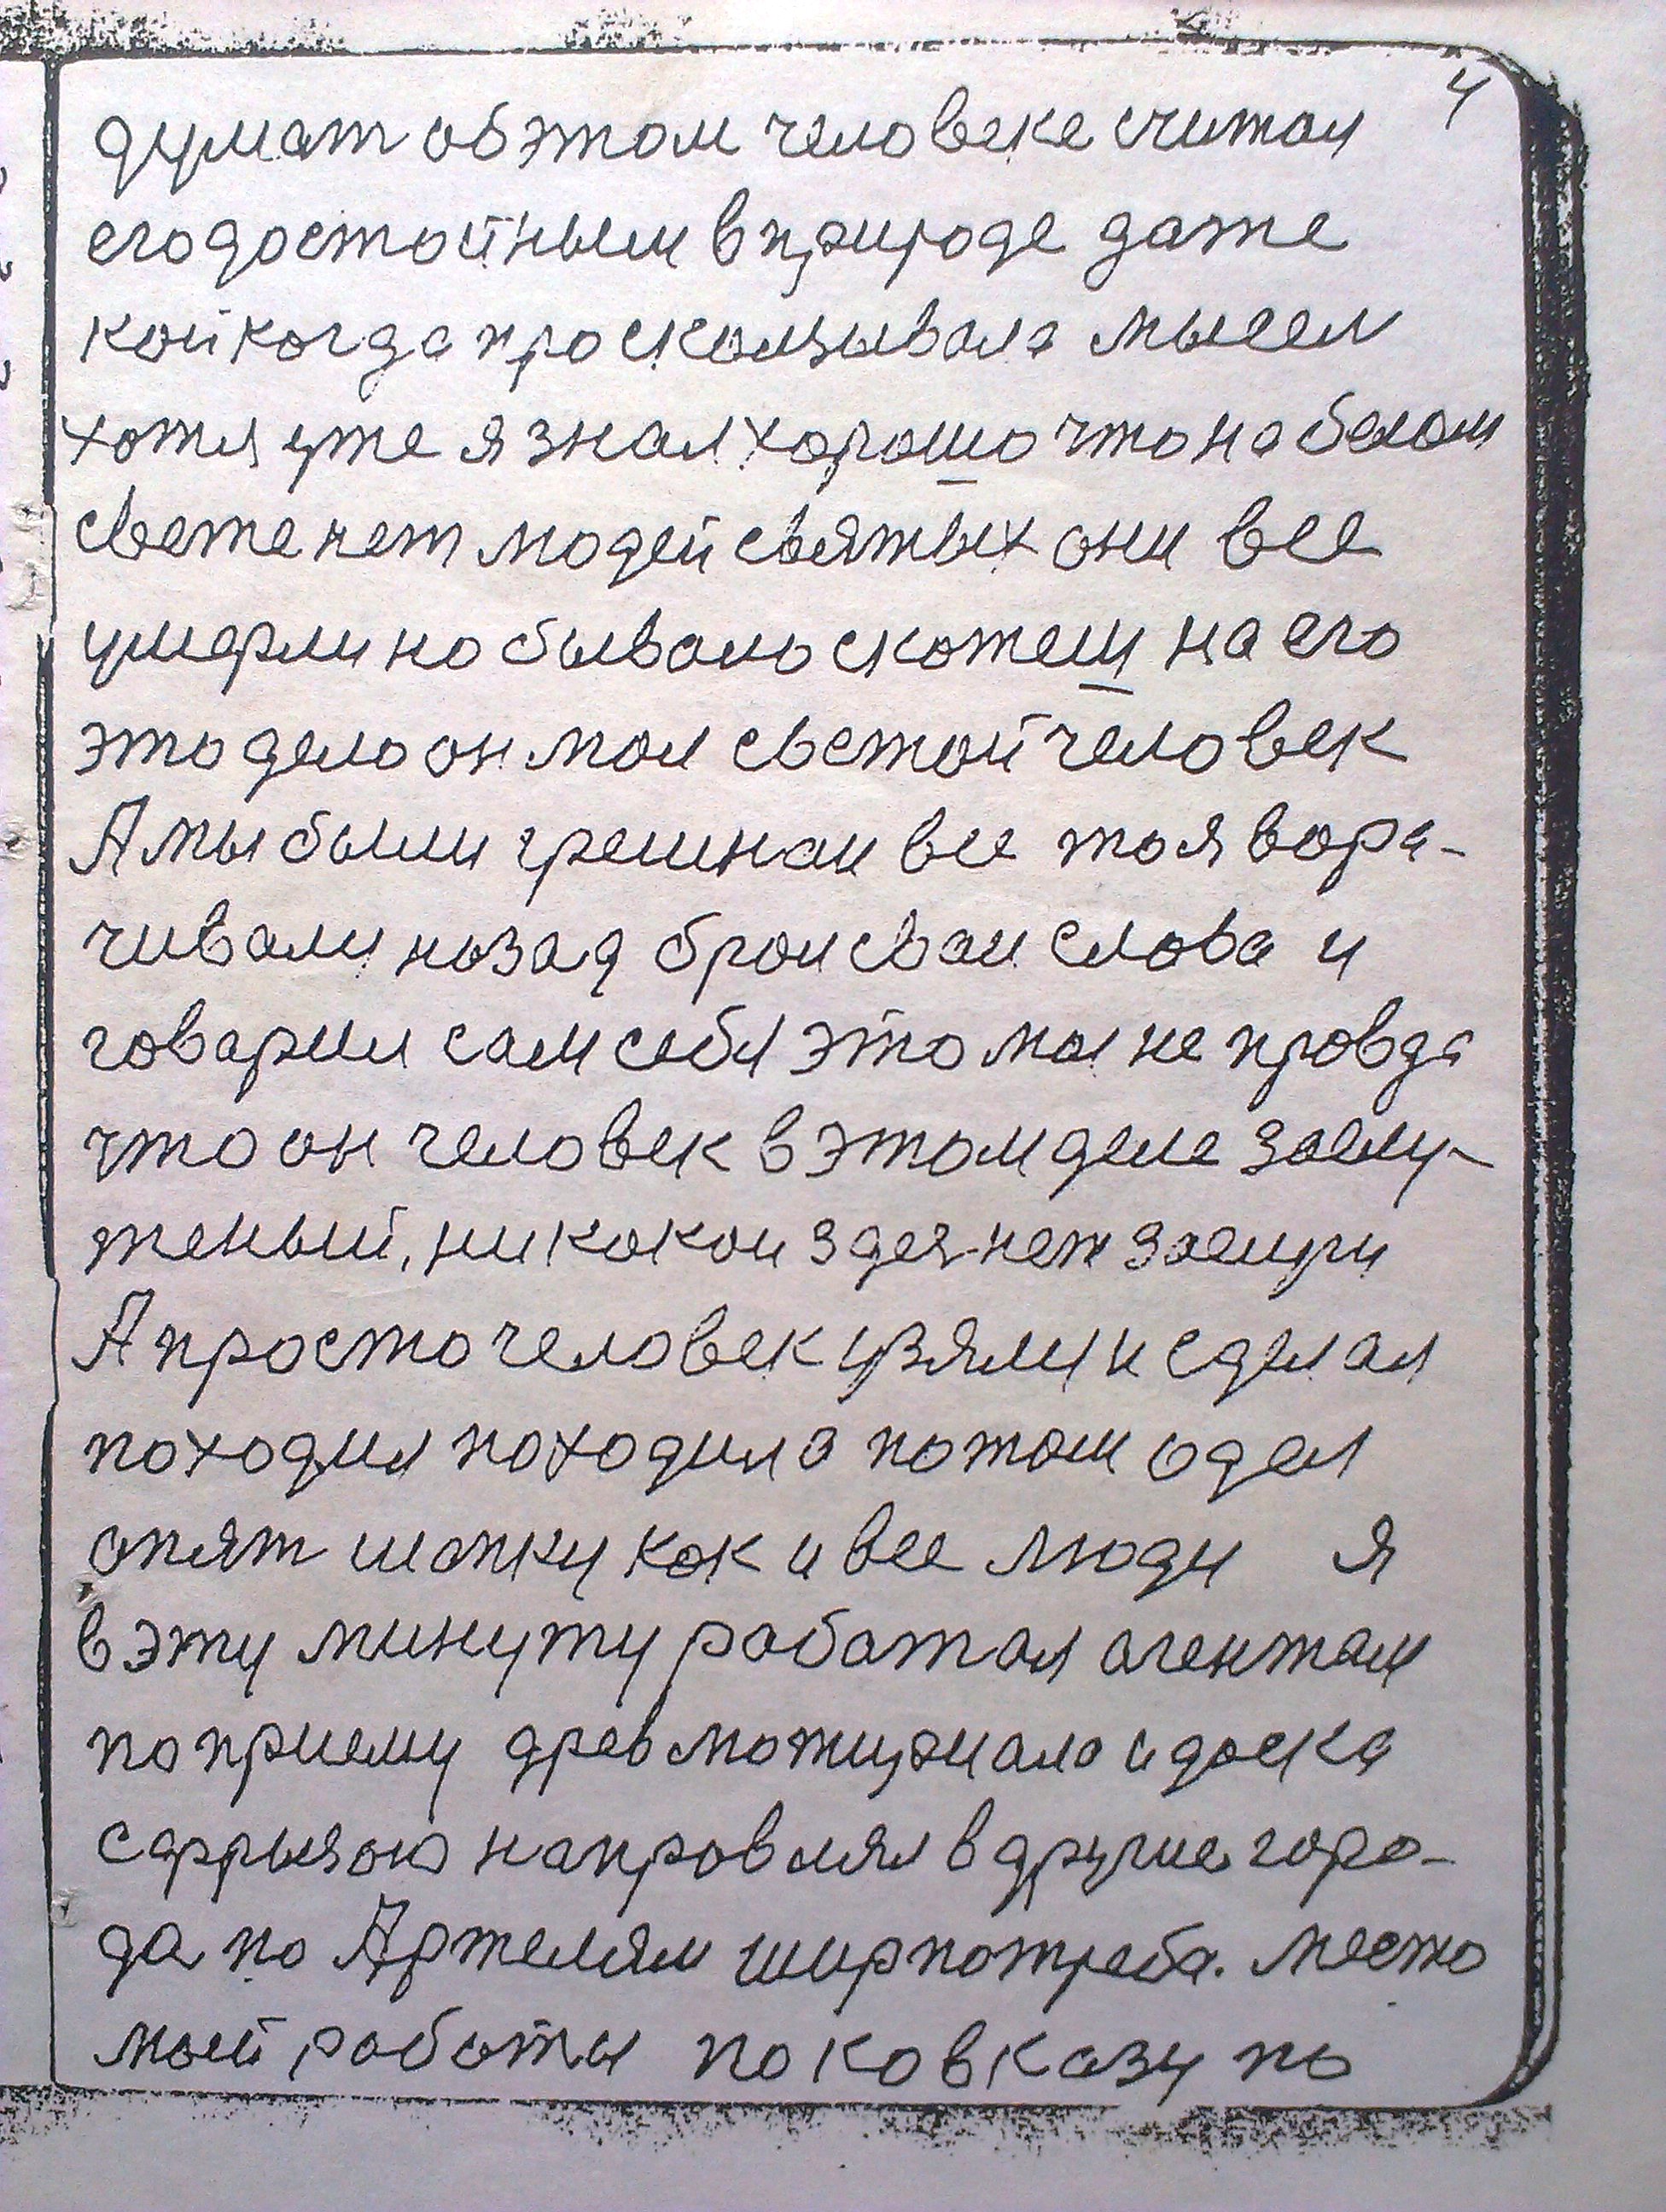 4
думат об этом человеке считал
его достойным в природе даже
кой когда проскользывала мысел
хотя уже я знал хорошо что на белом
свете нет людей святых они все
умерли но бывало скажеш на его
это дело он мол светой человек
А мы были грешнаи все то я вора-
чивали назад брал сваи слова и
говарил сам себя это мол не правда
что он человек в этом деле заслу-
женый, никакои здес нет заслуги
А просто человек взяли и сделал
походил походил а потом одел
опят шапку как и все люди я
в эту минуту работал агентам
по приему древ мотириала и доска
с фрызою направлял в другие горо-
да по Артелям ширпотреба. место
моей работы по ковказу по